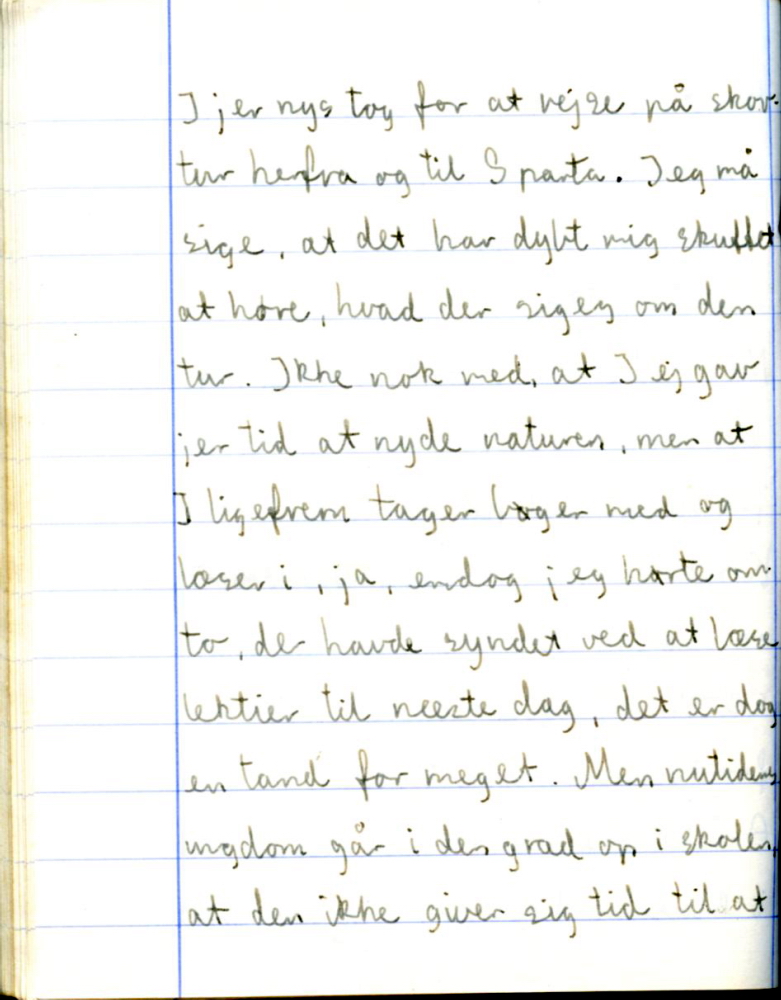 I jer nys tog for at rejse på skov-
tur herfra og til Sparta. Jeg må
sige, at det har dybt mig skuffet
at høre, hvad der siges om den
tur. Ikke nok med, at I ej gav
jer tid at nyde naturen, men at
I ligefrem tager bøger med og
læser i, ja, endog jeg hørte om
to, der havde syndet ved at læse
lektier til næste dag, det er dog
en tand for meget. Men nutidens
ungdom går i den grad op i skolen,
at den ikke giver sig tid til at